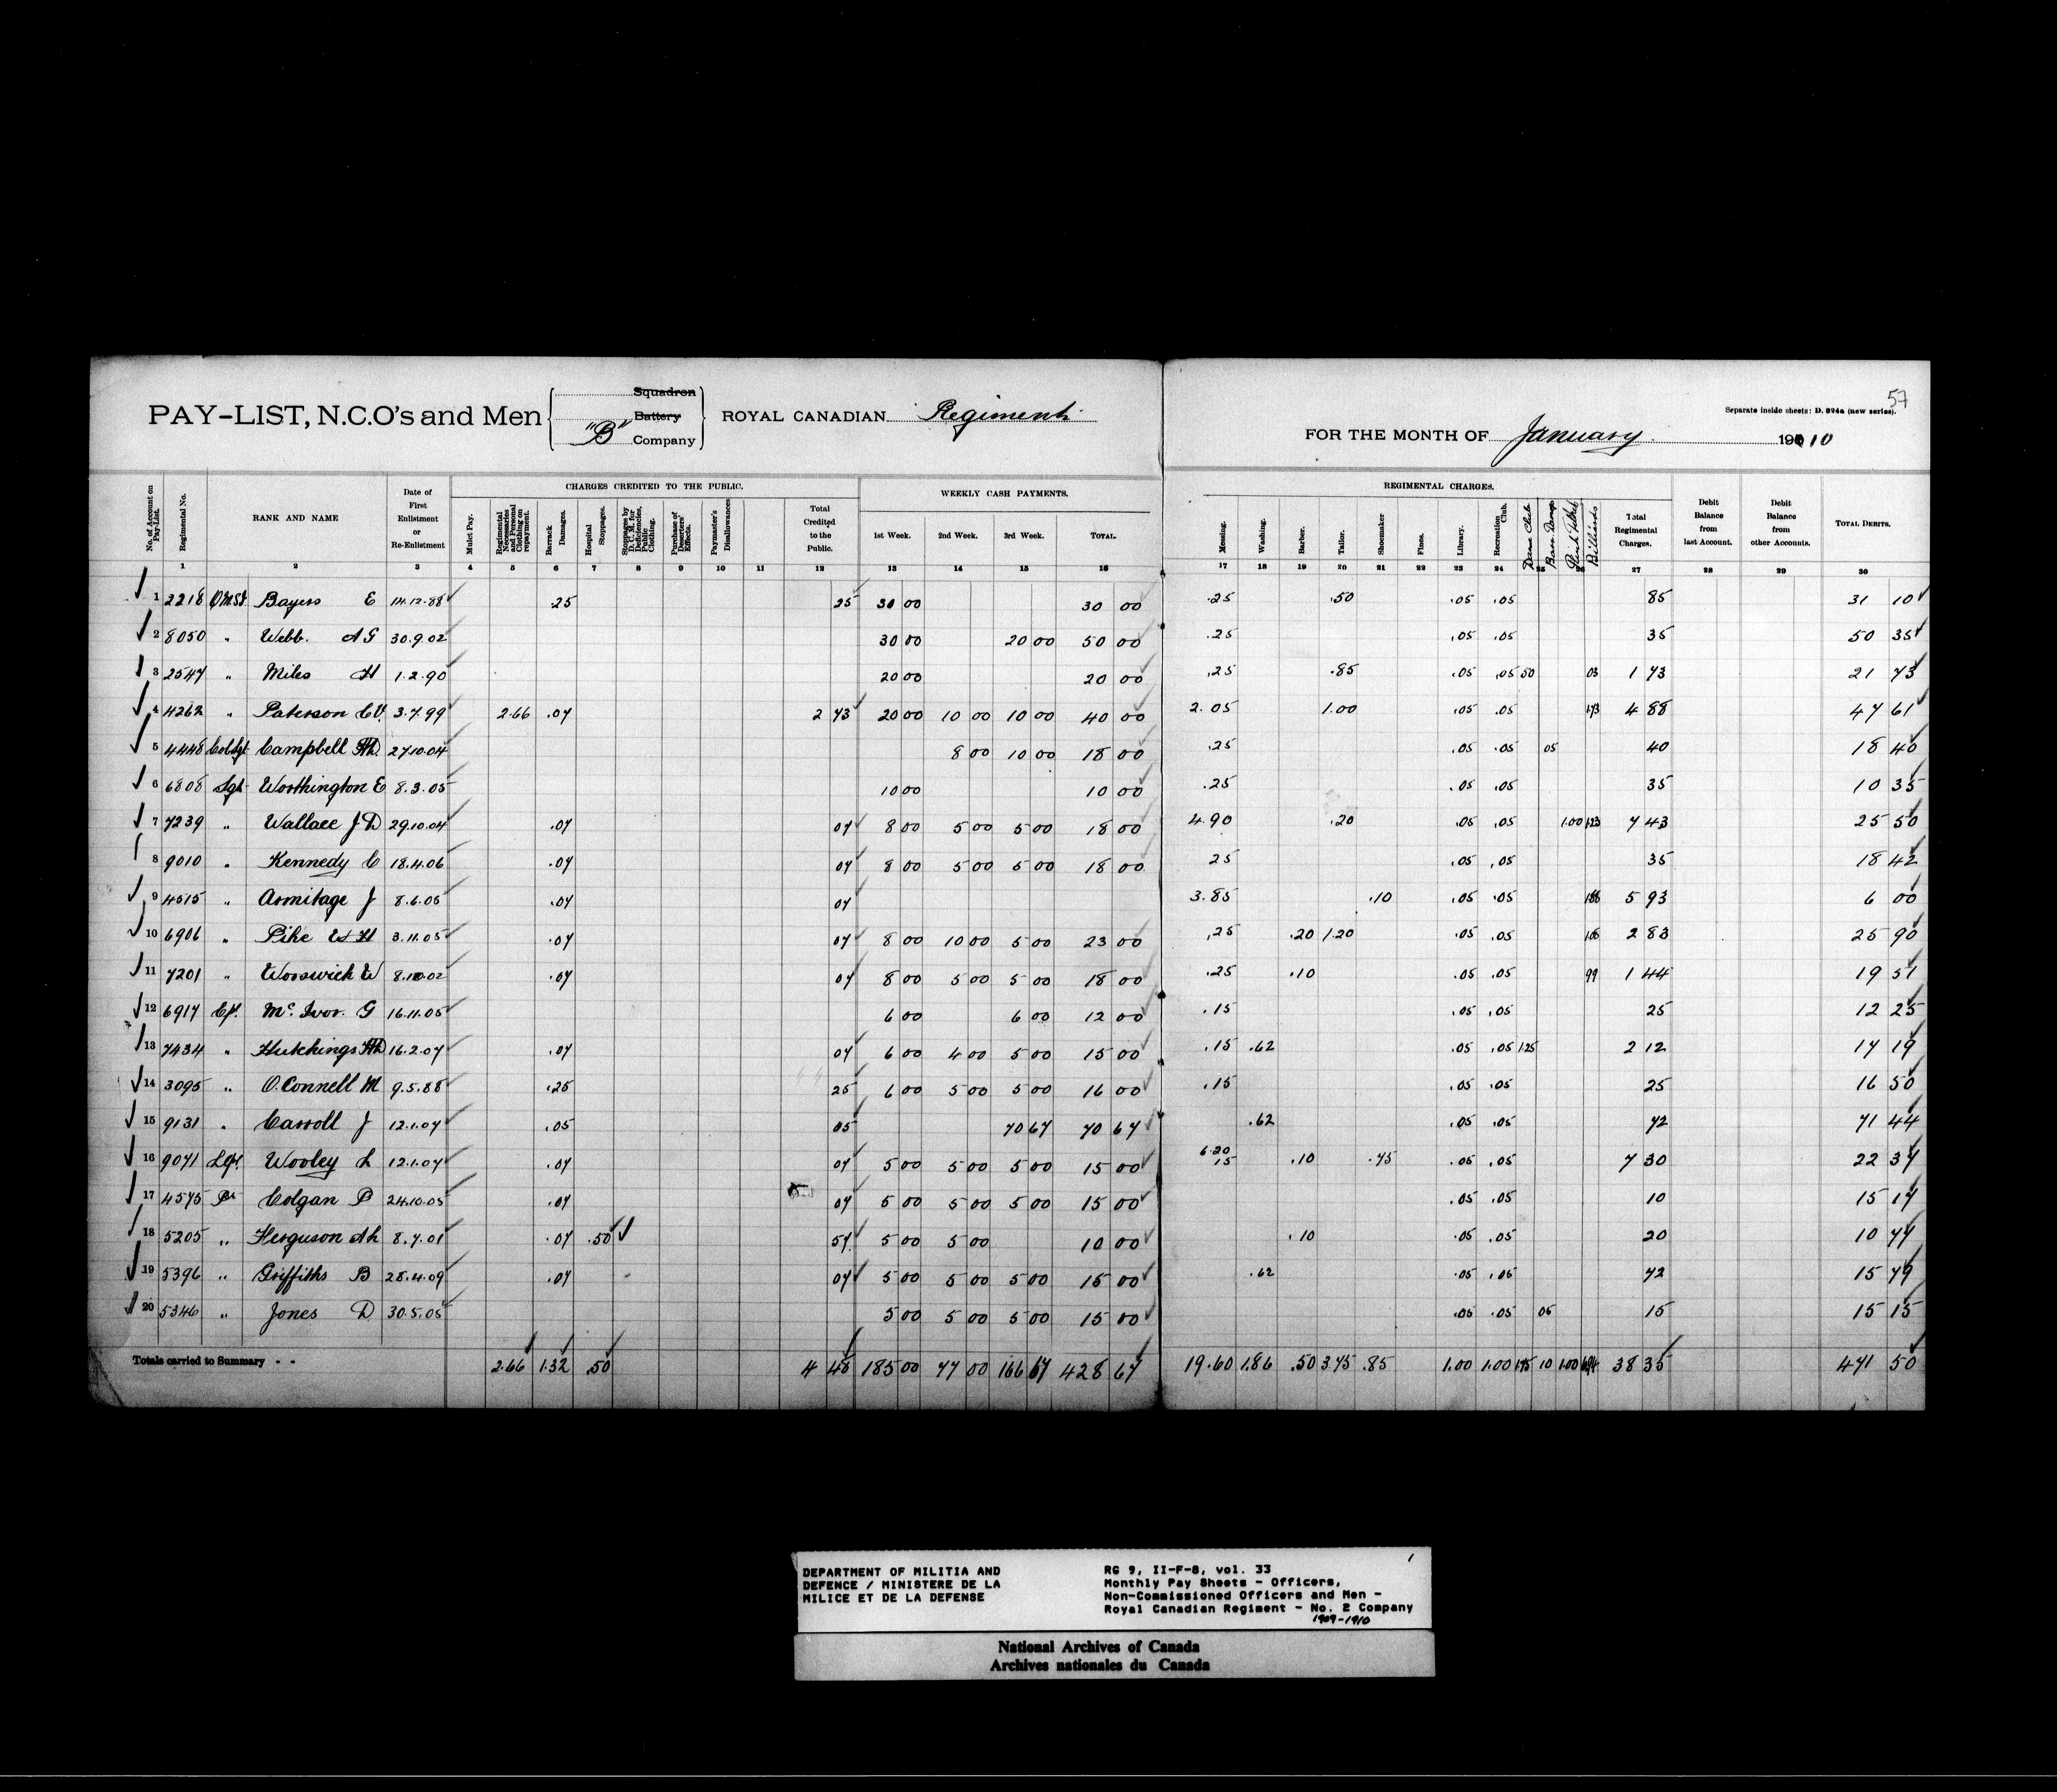 57
Separate inside sheets: D. 894a (new series).
PAY-LIST, N.C.O's and Men Squadron Battery "B" Company ROYAL CANADIAN Regiment
FOR THE MONTH OF January 1910
No. of Account on Pay-List. Regimental No. RANK AND NAME Date of First Enlistment or Re-Enlistment CHARGES CREDITED TO THE PUBLIC. WEEKLY CASH PAYMENTS. REGIMENTAL CHARGES. Debit Balance from last Account. Debit Balance from other Accounts. TOTAL DEBITS.
Mulct Pay. Regimental Necessaries and Personal Clothing on repayment. Barrack Damages. Hospital Stoppages. Stoppages by D. C. M. for Deficiencies, Public Clothing. Purchase of Deserters' Effects. Paymaster's Disallowances Total Credited to the Public. 1st Week. 2nd Week. 3rd Week. TOTAL. Messing. Washing. Barber. Tailor. Shoemaker Fines. Library. Recreation Club. Dance Club Billiards Total Regimental Charges.
1 2 3 4 5 6 7 8 9 10 11 12 13 14 15 16 17 18 19 20 21 22 23 24 25 26 27 28 29 30
1 2218 QMSI Bayers E 14.12.88 .25 25 30 00 30 00 .25 .50 .05 .05 85 31 10
2 8050 " Webb. A G 30.9.02 30 00 20 00 50 00 .25 .05 .05 35 50 35
3 2547 " Miles H 1.2.90 20 00 20 00 .25 .85 .05 .05 50 03 1 73 21 73
4 4262 " Paterson C V. 3.7.99 2.66 .07 2 73 20 00 10 00 10 00 40 00 2.05 1.00 .05 .05 1.73 4 88 47 61
5 4448 Col Sgt Campbell 27.10.04 8 00 10 00 18 00 .25 .05 .05 05 40 18 40
6 6808 Sgt Worthington E 8.3.05 10 00 10 00 .25 .05 .05 35 10 35
7 7239 " Wallace J D 29.10.04 .07 07 8 00 5 00 5 00 18 00 4.90 .20 .05 .05 1.00 1.23 7 43 25 50
8 9010 " Kennedy C 18.4.06 .07 07 8 00 5 00 5 00 18 00 25 .05 .05 35 18 42
9 4515 " Armitage J 8.6.05 .07 07 3.85 .10 .05 .05 1.88 5 93 6 00
10 6906 " Pike E H 3.11.05 .07 07 8 00 10 00 5 00 23 00 .25 .20 1.20 .05 .05 1.08 2 83 25 90
11 7201 " Worswick W 8.10.02 .07 07 8 00 5 00 5 00 18 00 .25 .10 .05 .05 99 1 44 19 51
12 6917 Cpl. Mc. Ivor. G 16.11.05 6 00 6 00 12 00 .15 .05 .05 25 12 25
13 7434 " Hutchings 16.2.07 .07 07 6 00 4 00 5 00 15 00 .15 .62 .05 .05 1.25 2 12 17 19
14 3095 " O.Connell M 9.5.88 .25 25 6 00 5 00 5 00 16 00 .15 .05 .05 25 16 50
15 9131 " Carroll J 12.1.07 .05 05 70 67 70 67 .62 .05 .05 72 71 44
16 9071 LCpl. Wooley L 12.1.07 .07 07 5 00 5 00 5 00 15 00 6.20 .15 .10 .75 .05 .05 7 30 22 37
17 4575 Pte Colgan P 24.10.05 .07 07 5 00 5 00 5 00 15 00 .05 .05 10 15 17
18 5205 " Ferguson A L 8.7.01 .07 .50 57 5 00 5 00 10 00 .10 .05 .05 20 10 77
19 5396 " Griffiths B 28.4.09 .07 07 5 00 5 00 5 00 15 00 .62 .05 .05 72 15 79
20 5346 " Jones D 30.5.05 5 00 5 00 5 00 15 00 .05 .05 05 15 15 15
Totals carried to Summary - - 2.66 1.32 .50 4 48 185 00 77 00 166 67 428 67 19.60 1.86 .50 3.75 .85 1.00 1.00 1.75 10 1.00 6.94 38 35 471 50
1
DEPARTMENT OF MILITIA AND
DEFENCE / MINISTERE DE LA
MILICE ET DE LA DEFENSE
RG 9, II-F-8, vol. 33
Monthly Pay Sheets - Officers,
Non-Commissioned Officers and Men -
Royal Canadian Regiment - No. 2 Company
1909-1910
National Archives of Canada
Archives nationales du Canada